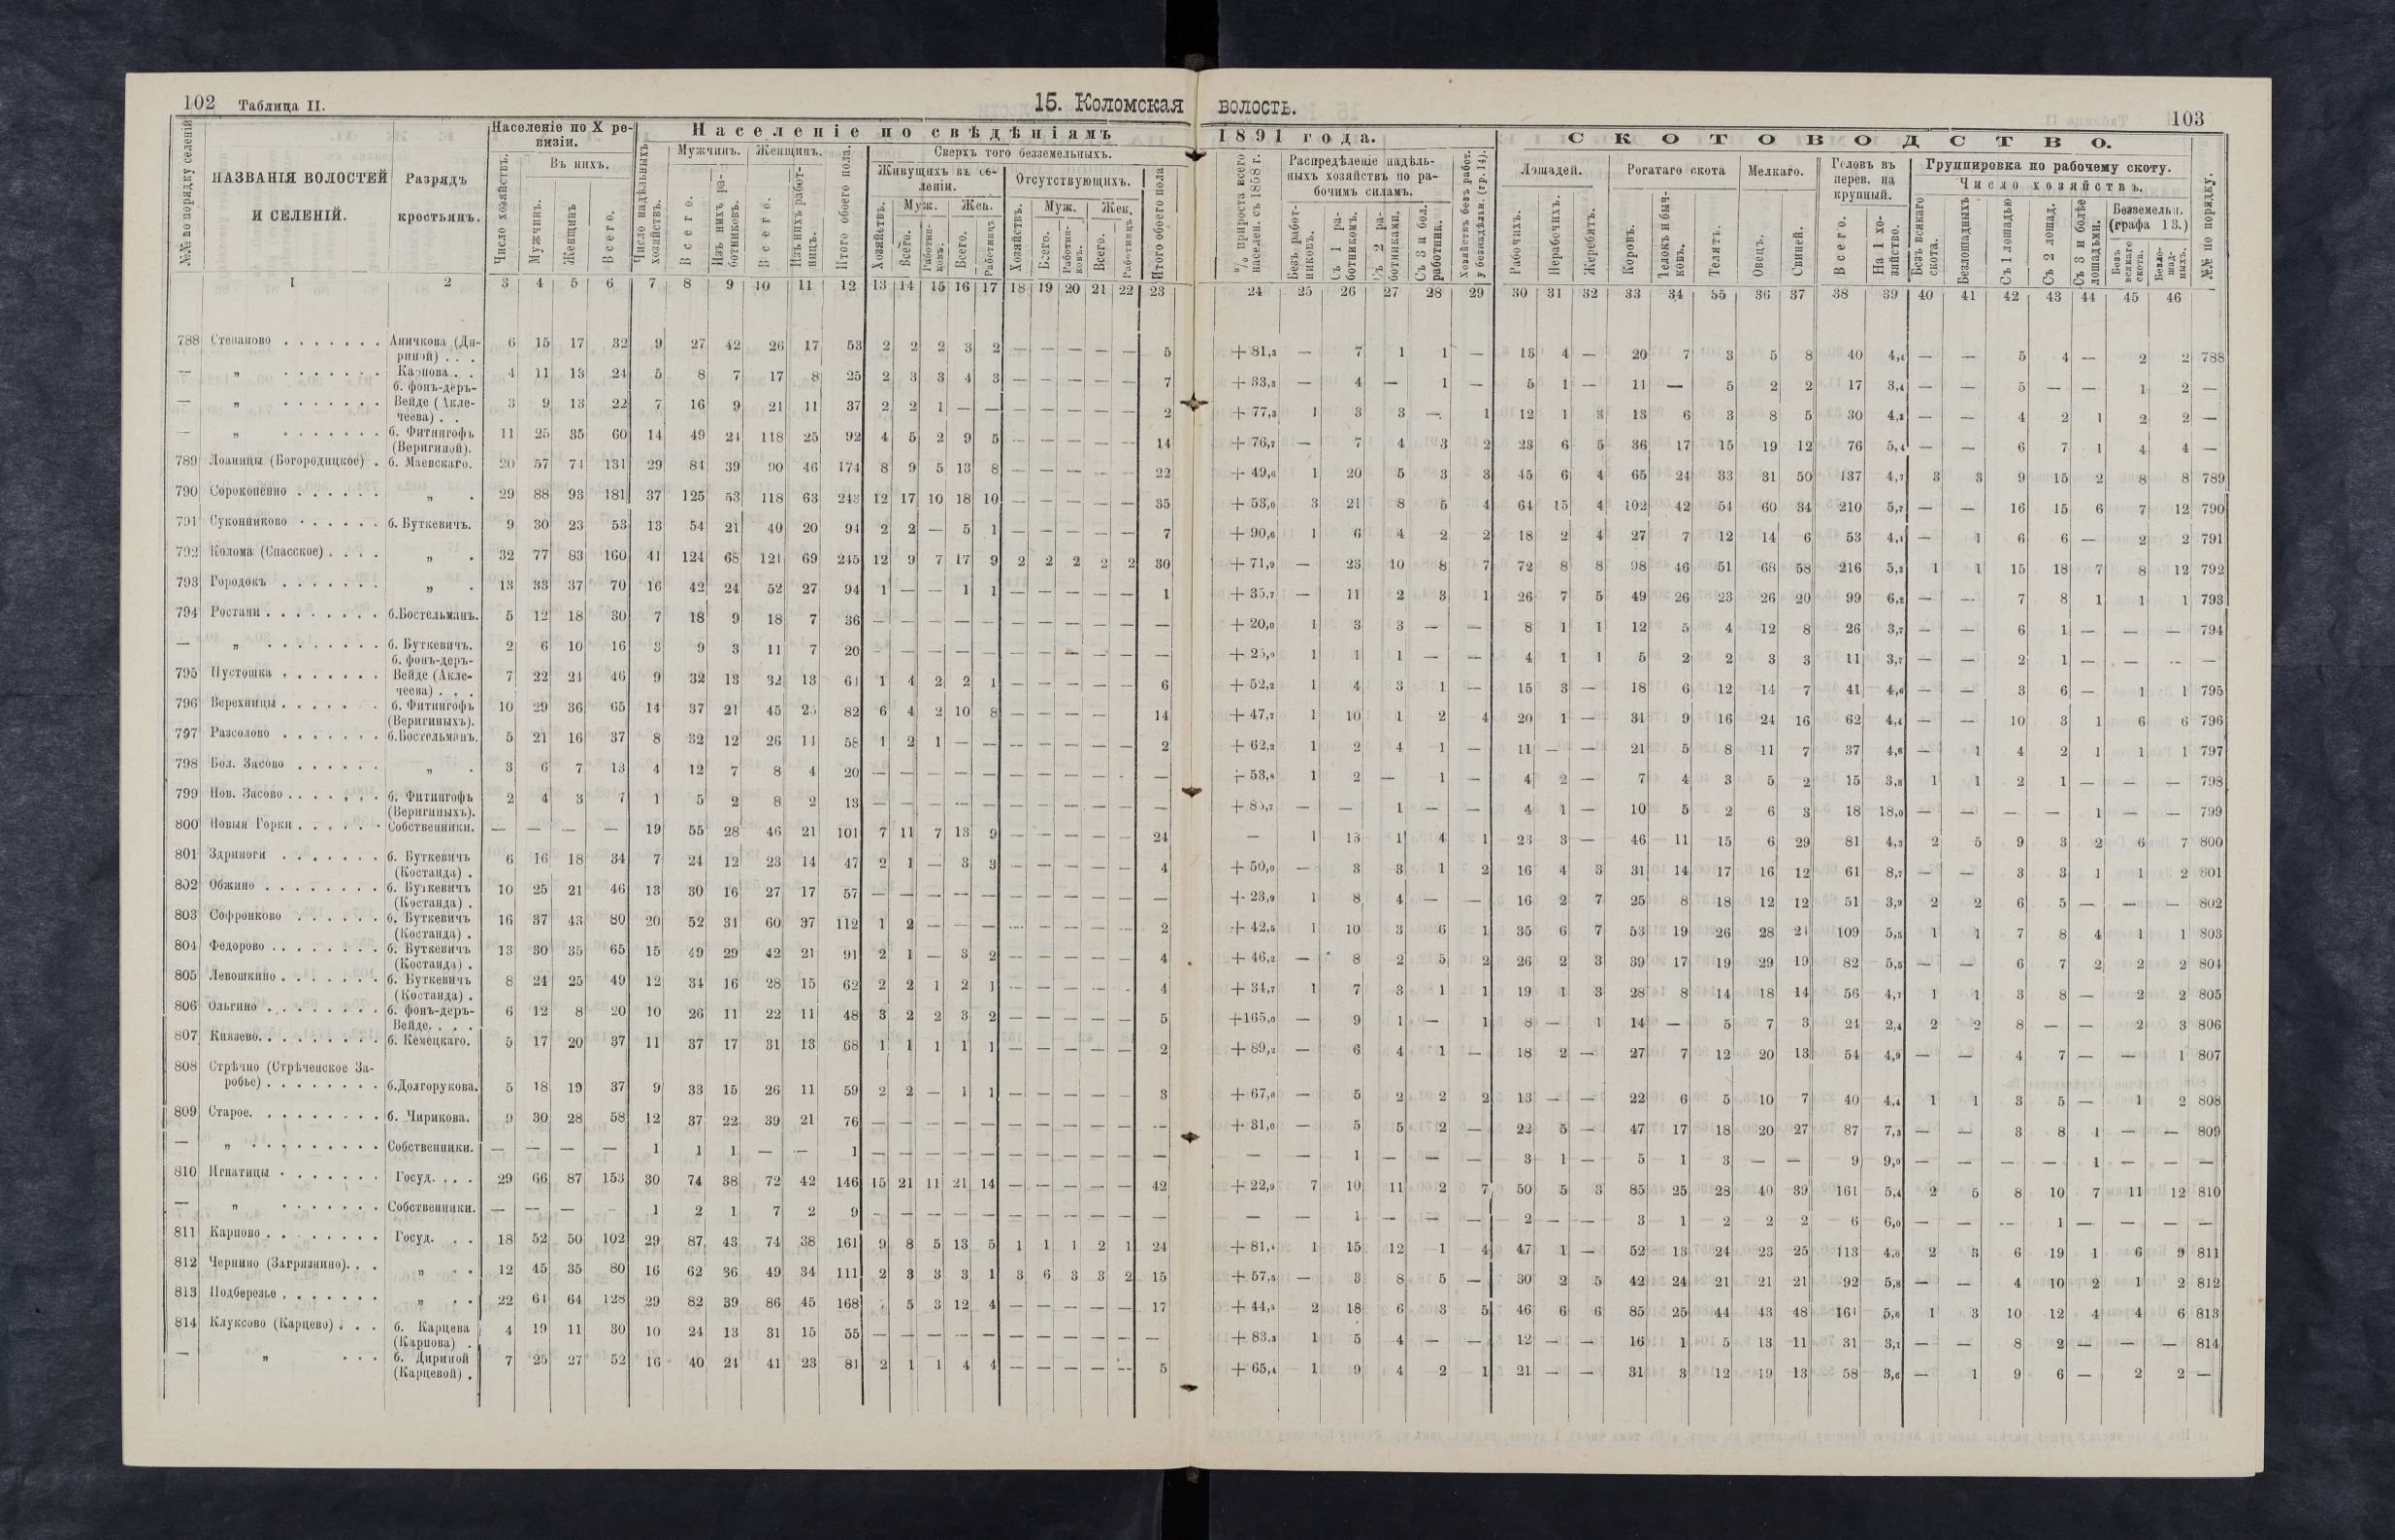 102 Таблица II.
15. Коломская волость.
103
№№ по порядку селеній
НАЗВАНІЯ ВОЛОСТЕЙ И СЕЛЕНІЙ.
Разрядъ крестьянъ.
Населеніе по X ревизіи.
Число хозяйствъ.
Въ нихъ.
Мужчинъ.
Женщинъ
Всего.
Населеніе по свѣдѣніямъ 1891 года.
Число надѣльныхъ хозяйствъ.
Мужчинъ.
Всего.
Изъ нихъ работниковъ.
Женщинъ.
Всего.
Изъ нихъ работницъ.
Итого обоего пола.
Сверхъ того безземельныхъ.
Живущихъ въ селеніи.
Отсутствующихъ.
Хозяйствъ.
Муж.
Жен.
Итого обоего пола
% прироста всего населен. съ 1858 г.
Распредѣленіе надѣльныхъ хозяйствъ по рабочимъ силамъ.
Безъ работниковъ.
Съ 1 работникомъ.
Съ 2 работниками.
Съ 3 и бол. работник.
Хозяйствъ безъ работ. у безнадѣльн. (гр. 14).
СКОТОВОДСТВО.
Лошадей.
Рабочихъ.
Нерабочихъ.
Жеребятъ.
Рогатаго скота
Коровъ.
Телокъ и бычковъ.
Телятъ.
Мелкаго.
Овецъ.
Свиней.
Головъ въ перев. на крупный.
Всего.
На 1 хозяйство.
Группировка по рабочему скоту.
Число хозяйствъ.
Безъ всякаго скота.
Безлошадныхъ
Съ 1 лошадью
Съ 2 лошад.
Съ 3 и болѣе лошадьми.
Безземельн. (графа 13.)
Безъ всякаго скота.
Безлошадныхъ.
№№ по порядку.
1 2 3 4 5 6 7 8 9 10 11 12 13 14 15 16 17 18 19 20 21 22 23 24 25 26 27 28 29 30 31 32 33 34 35 36 37 38 39 40 41 42 43 44 45 46
788 Степаново Аничкова (Дириной) 6 15 17 32 9 27 42 26 17 53 2 2 2 3 2 — — — — — 5 +81,3 — 7 1 1 — 13 4 — 20 7 3 5 8 40 4,4 — — 5 4 — 2 2 788
— „ Карпова 4 11 13 24 5 8 7 17 8 25 2 3 3 4 3 — — — — — 7 +33,3 — 4 — 1 — 5 1 — 11 — 5 2 2 17 3,4 — — 5 — — 1 2 —
— „ б. фонъ-деръ-Вейде (Аклечеева) 3 9 13 22 7 16 9 21 11 37 2 2 1 — — — — — — — 2 +77,3 1 3 3 — 1 12 1 3 13 6 3 8 5 30 4,2 — — 4 2 1 2 2 —
— „ б. Фитингофъ (Веригиной). 11 25 35 60 14 49 21 118 25 92 4 5 2 9 5 — — — — — 14 +76,7 — 7 4 3 2 23 6 5 36 17 15 19 12 76 5,4 — — 6 7 1 4 4 —
789 Лоаницы (Богородицкое) б. Маевскаго. 20 57 74 131 29 84 39 90 46 174 8 9 5 13 8 — — — — — 22 +49,6 1 20 5 3 3 45 6 4 65 24 33 31 50 137 4,7 3 3 9 15 2 8 8 789
790 Сорокопенно „ 29 88 93 181 37 125 53 118 63 243 12 17 10 18 10 — — — — — 35 +53,0 3 21 8 5 4 64 15 4 102 42 54 60 34 210 5,7 — — 16 15 6 7 12 790
791 Суконниково б. Буткевичъ. 9 30 23 53 13 54 21 40 20 94 2 2 — 5 1 — — — — — 7 +90,6 1 6 4 2 2 18 2 4 27 7 12 14 6 53 4,1 — 1 6 6 — 2 2 791
792 Колома (Спасское) „ 32 77 83 160 41 124 68 121 69 245 12 9 7 17 9 2 2 2 2 2 30 +71,9 — 23 10 8 7 72 8 8 98 46 51 68 58 216 5,3 1 1 15 18 7 8 12 792
793 Городокъ „ 13 33 37 70 16 42 24 52 27 94 1 — — 1 1 — — — — — 1 +35,7 — 11 2 3 1 26 7 5 49 26 23 26 20 99 6,2 — — 7 8 1 1 1 793
794 Ростани б.Востельманъ. 5 12 18 30 7 18 9 18 7 36 — — — — — — — — — — — +20,0 1 3 3 — — 8 1 1 12 5 4 12 8 26 3,7 — — 6 1 — — — 794
— „ б. Буткевичъ. 2 6 10 16 3 9 3 11 7 20 — — — — — — — — — — — +25,0 1 1 1 — — 4 1 1 5 2 2 3 3 11 3,7 — — 2 1 — — — —
795 Пустошка б. фонъ-деръ-Вейде (Аклечеева) 7 22 24 46 9 32 13 32 13 64 1 4 2 2 1 — — — — — 6 +52,2 1 4 3 1 — 15 3 — 18 6 12 14 7 41 4,6 — — 3 6 — 1 1 795
796 Верехницы б. Фитингофъ (Веригиныхъ). 10 29 36 65 14 37 21 45 25 82 6 4 2 10 8 — — — — 14 +47,7 1 10 1 2 4 20 1 — 31 9 16 24 16 62 4,4 — — 10 3 1 6 6 796
797 Разсолово б.Востельманъ. 5 21 16 37 8 32 12 26 14 58 1 2 1 — — — — — — — 2 +62,2 1 2 4 1 — 11 — — 21 5 8 11 7 37 4,6 — 1 4 2 1 1 1 797
798 Бол. Засово „ 3 6 7 13 4 12 7 8 4 20 — — — — — — — — — — — +53,8 1 2 — 1 — 4 2 — 7 4 3 5 2 15 3,8 1 1 2 1 — — — 798
799 Нов. Засово б. Фитингофъ (Веригиныхъ). 2 4 3 7 1 5 2 8 2 13 — — — — — — — — — — — +85,7 — — 1 — — 4 1 — 10 5 2 6 3 18 18,0 — — — — 1 — — 799
800 Новыя Горки Собственники. — — — — 19 55 28 46 21 101 7 11 7 13 9 — — — — — 24 — 1 13 1 4 1 23 3 — 46 11 15 6 29 81 4,3 2 5 9 3 2 6 7 800
801 Здриноги б. Буткевичъ (Костанда) 6 16 18 34 7 24 12 23 14 47 2 1 — 3 3 — — — — — 4 +50,0 — 3 3 1 2 16 4 3 31 14 17 16 12 61 8,7 — — 3 3 1 1 2 801
802 Обжино б. Буткевичъ (Костанда) 10 25 21 46 13 30 16 27 17 57 — — — — — — — — — — — +23,9 1 8 4 — — 16 2 7 25 8 18 12 12 51 3,9 2 2 6 5 — — — 802
803 Софронково б. Буткевичъ (Костанда) 16 37 43 80 20 52 31 60 37 112 1 2 — — — — — — — — 2 +42,5 1 10 3 6 1 35 6 7 53 19 26 28 21 109 5,5 1 1 7 8 4 1 1 803
804 Федорово б. Буткевичъ (Костанда) 13 30 35 65 15 49 29 42 21 91 2 1 — 3 2 — — — — — 4 +46,2 — 8 2 5 2 26 2 3 39 17 19 29 19 82 5,5 — — 6 7 2 2 2 804
805 Левошкино б. Буткевичъ (Костанда) 8 24 25 49 12 34 16 28 15 62 2 2 1 2 1 — — — — — 4 +34,7 1 7 3 1 1 19 1 3 28 8 14 18 14 56 4,7 1 1 3 8 — 2 2 805
806 Ольгино б. фонъ-деръ-Вейде. 6 12 8 20 10 26 11 22 11 48 3 2 2 3 2 — — — — — 5 +165,0 — 9 1 — 1 8 — 1 14 — 5 7 3 24 2,4 2 2 8 — — 2 3 806
807 Князево б. Кемецкаго. 5 17 20 37 11 37 17 31 13 68 1 1 1 1 1 — — — — — 2 +89,2 — 6 4 1 — 18 2 — 27 7 12 20 13 54 4,9 — — 4 7 — — 1 807
808 Стрѣчно (Стрѣченское Заробье) б.Долгорукова. 5 18 19 37 9 33 15 26 11 59 2 2 — 1 1 — — — — — 3 +67,6 — 5 2 2 2 13 — — 22 6 5 10 7 40 4,4 1 1 3 5 — 1 2 808
809 Старое. б. Чирикова. 9 30 28 58 12 37 22 39 21 76 — — — — — — — — — — — +31,0 — 5 5 2 — 22 5 — 47 17 18 20 27 87 7,3 — — 3 8 1 — — 809
— „ Собственники. — — — — 1 1 1 — — 1 — — — — — — — — — — — — — 1 — — — 3 1 — 5 1 3 — — 9 9,0 — — — — 1 — — —
810 Игнатицы Госуд. 29 66 87 153 30 74 38 72 42 146 15 21 11 21 14 — — — — — 42 +22,9 7 10 11 2 7 50 5 3 85 25 28 40 39 161 5,4 2 5 8 10 7 11 12 810
— „ Собственники. — — — — 1 2 1 7 2 9 — — — — — — — — — — — — — 1 — — — 2 — — 3 1 2 2 2 6 6,0 — — — 1 — — — —
811 Карпово Госуд. 18 52 50 102 29 87 43 74 38 161 9 8 5 13 5 1 1 1 2 1 24 +81,4 1 15 12 1 4 47 1 — 52 13 24 23 25 113 4,0 2 3 6 19 1 6 9 811
812 Чернино (Загрязнино). „ 12 45 35 80 16 62 36 49 34 111 2 3 3 3 1 3 6 3 3 2 15 +57,5 — 3 8 5 — 30 2 5 42 24 21 21 21 92 5,8 — — 4 10 2 1 2 812
813 Подберезье „ 22 64 64 128 29 82 39 86 45 168 7 5 3 12 4 — — — — — 17 +44,5 2 18 6 3 5 46 6 6 85 25 44 43 48 161 5,6 1 3 10 12 4 4 6 813
814 Клуксово (Карцево) б. Карцева (Карпова) 4 19 11 30 10 24 13 31 15 55 — — — — — — — — — — — +83,3 1 5 4 — — 12 — — 16 1 5 13 11 31 3,1 — — 8 2 — — — 814
— „ б. Дириной (Карцевой) 7 25 27 52 16 40 24 41 23 81 2 1 1 4 4 — — — — — 5 +65,4 1 9 4 2 1 21 — — 31 3 12 19 13 58 3,6 — 1 9 6 — 2 2 —